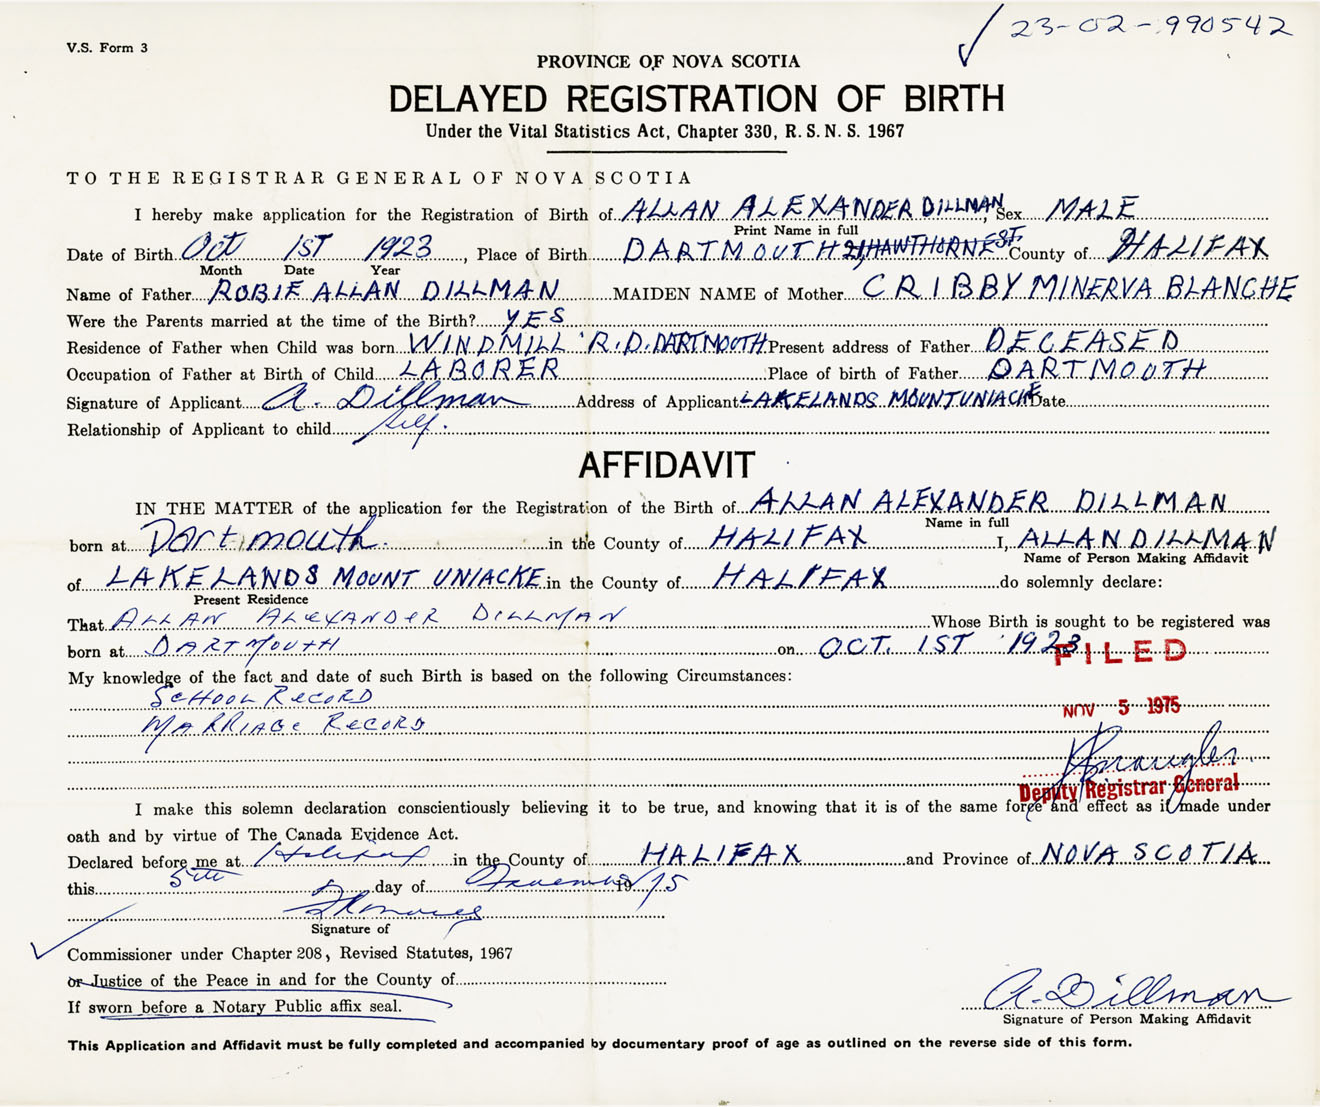 23-02-990542
V.S. Form 3
PROVINCE OF NOVA SCOTIA
DELAYED REGISTRATION OF BIRTH
Under the Vital Statistics Act, Chapter 330, R.S.N.S. 1967
TO THE REGISTRAR GENERAL OF NOVA SCOTIA
I hereby make application for the Registration of Birth of ALLAN ALEXANDER DILLMAN, Sex MALE
Print Name in full
Date of Birth Oct 1ST 1923, Place of Birth DARTMOUTH 21 HAWTHORNE ST. County of HALIFAX
Month Date Year
Name of Father ROBIE ALLAN DILLMAN MAIDEN NAME of Mother CRIBBY MINERVA BLANCHE
Were the Parents married at the time of the Birth? YES
Residence of Father when Child was born WINDMILL R.D. DARTMOUTH Present address of Father DECEASED
Occupation of Father at Birth of Child LABORER Place of birth of Father DARTMOUTH
Signature of Applicant A. Dillman Address of Applicant LAKELANDS MOUNT UNIACKE Date
Relationship of Applicant to child self.
AFFIDAVIT
IN THE MATTER of the application for the Registration of the Birth of ALLAN ALEXANDER DILLMAN
Name in full
born at Dartmouth. in the County of HALIFAX I, ALLAN DILLMAN
Name of Person Making Affidavit
of LAKELANDS MOUNT UNIACKE in the County of HALIFAX do solemnly declare:
Present Residence
That ALLAN ALEXANDER DILLMAN Whose Birth is sought to be registered was
born at DARTMOUTH on OCT. 1ST 1923
FILED
My knowledge of the fact and date of such Birth is based on the following Circumstances:
SCHOOL RECORD
MARRIAGE RECORD
NOV 5 1975
Deputy Registrar General
I make this solemn declaration conscientiously believing it to be true, and knowing that it is of the same force and effect as if made under
oath and by virtue of The Canada Evidence Act.
Declared before me at Halifax in the County of HALIFAX and Province of NOVA SCOTIA
this 5th day of November 1975
Signature of
Commissioner under Chapter 208, Revised Statutes, 1967
or Justice of the Peace in and for the County of
If sworn before a Notary Public affix seal.
A. Dillman
Signature of Person Making Affidavit
This Application and Affidavit must be fully completed and accompanied by documentary proof of age as outlined on the reverse side of this form.